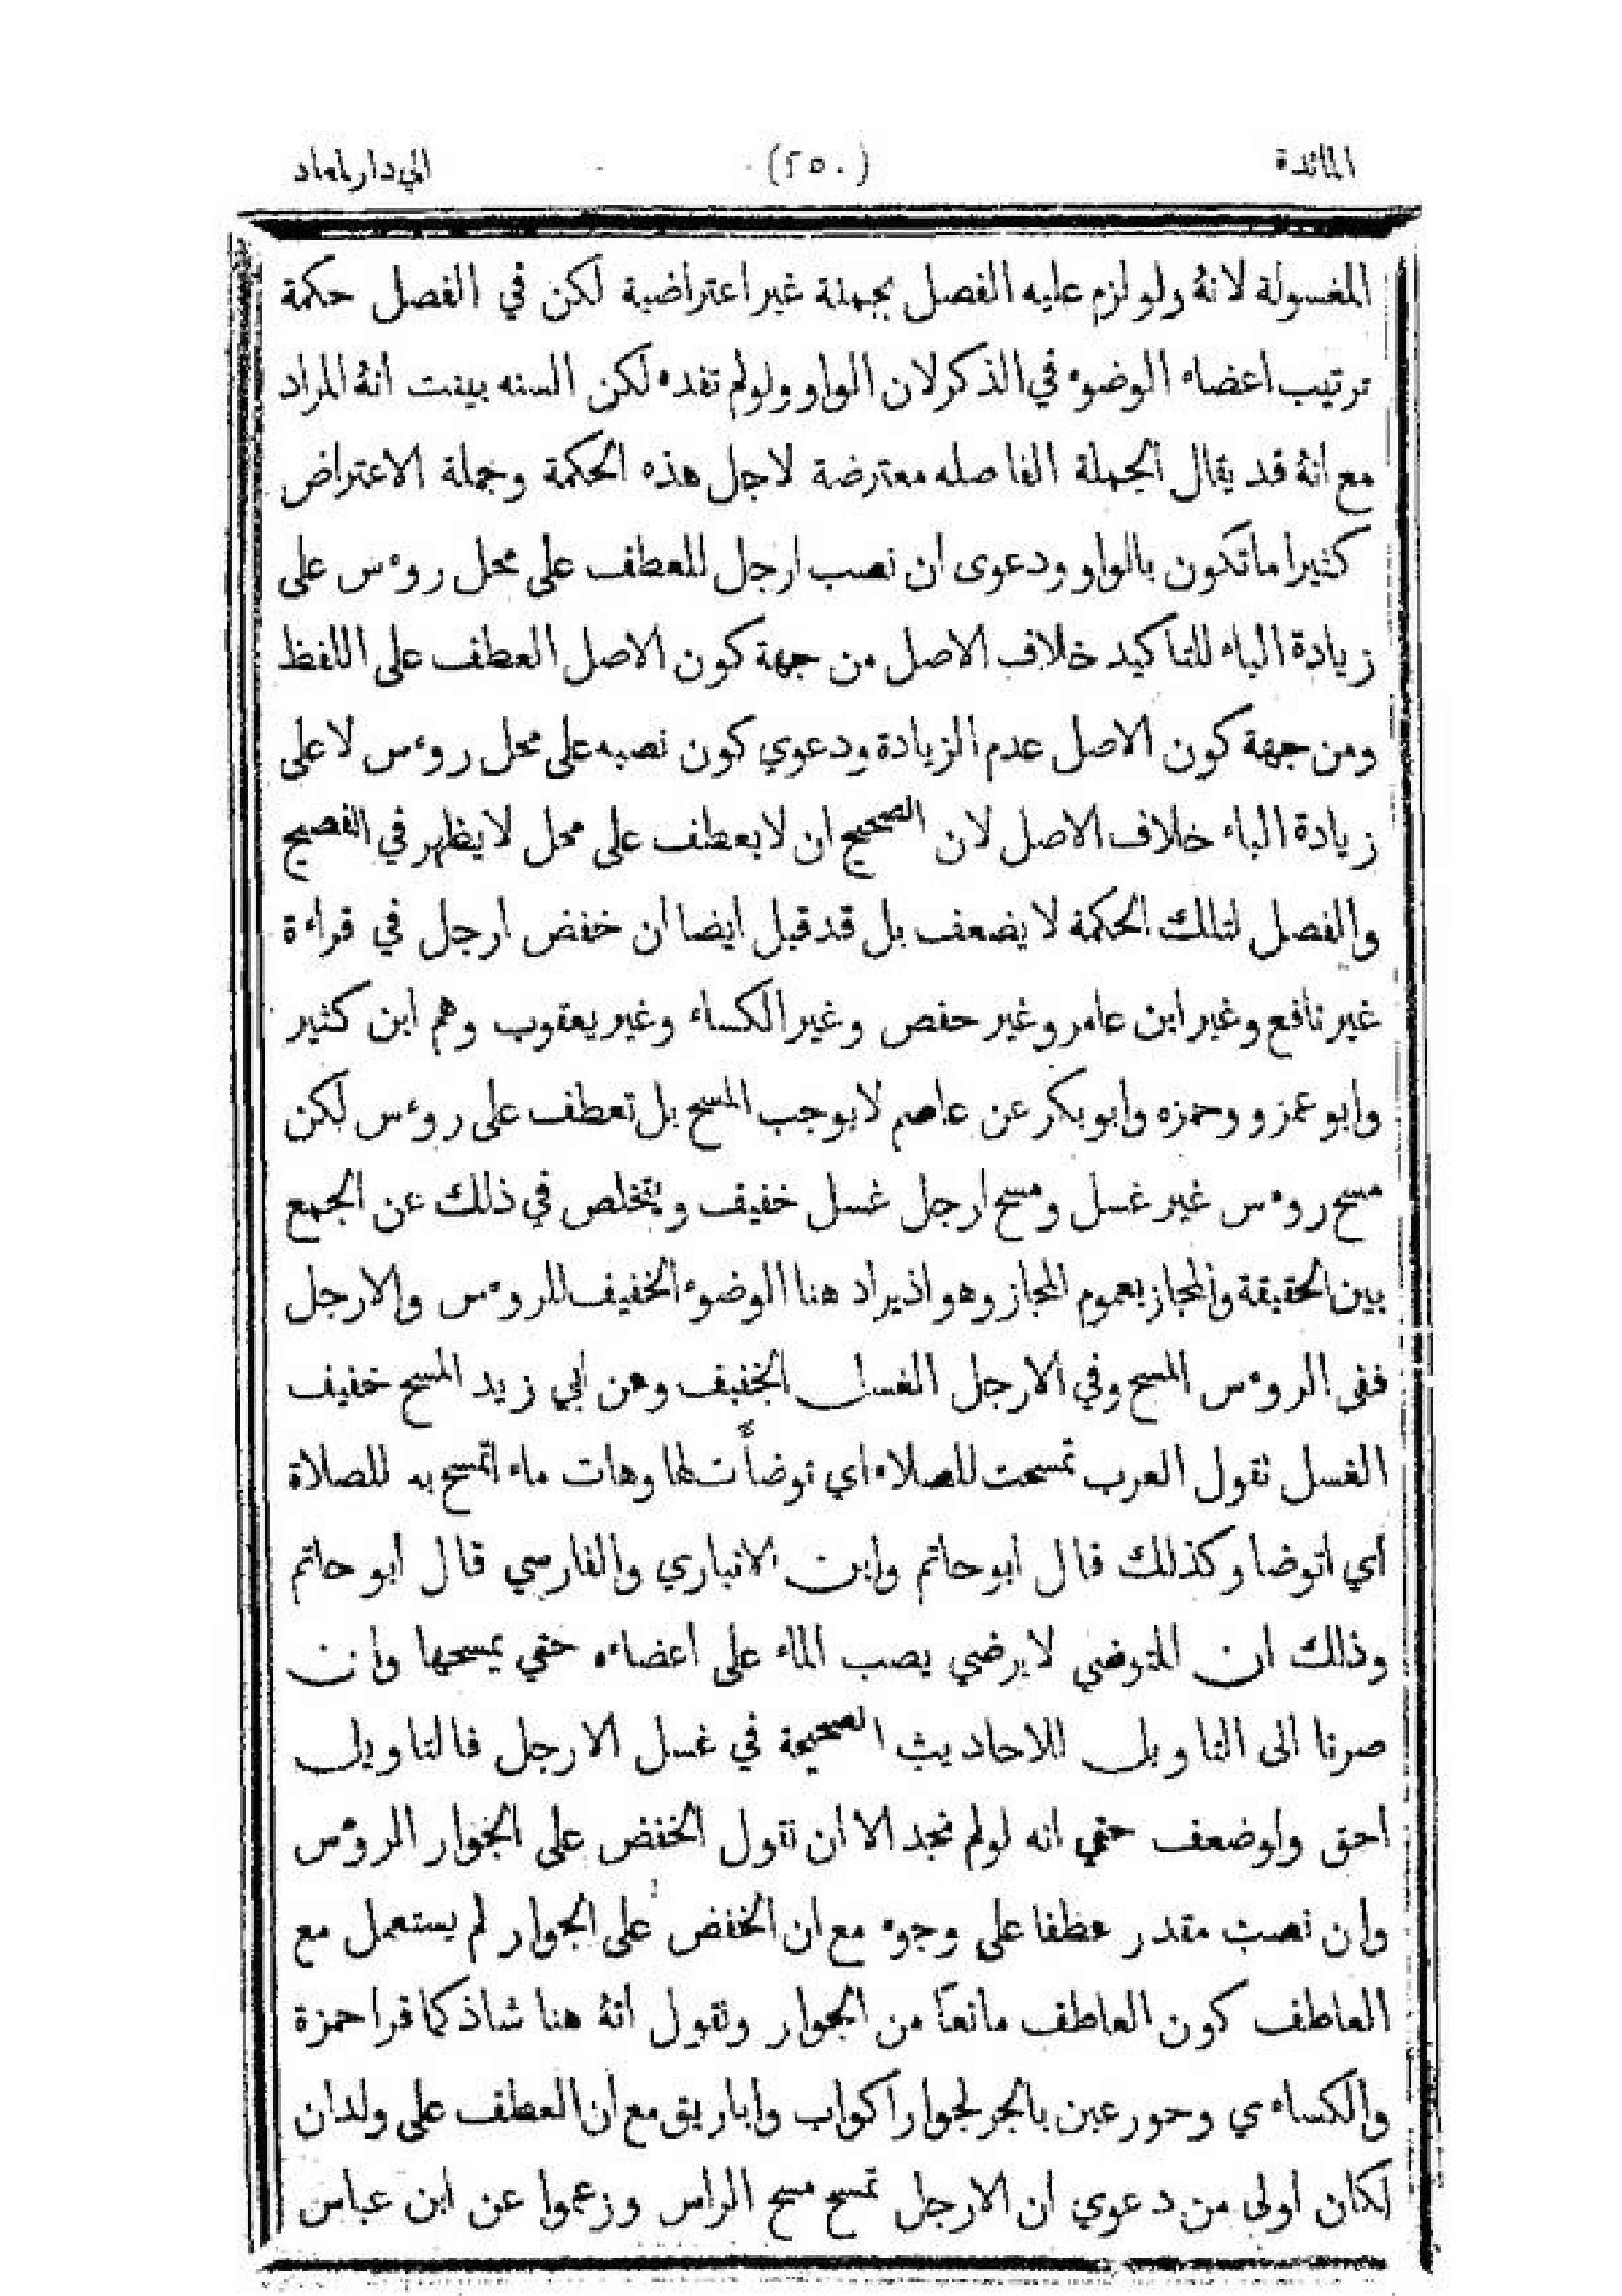 المائدة (٢٥٠) الي دار لمعاد
المغسولة لانهُ ولو لزم عليه الفصل بجملة غير اعتراضية لكن في الفصل حكمة
ترتيب اعضاء الوضوء في الذكر لان الواو ولو لم تفده لكن السنه بينت انهُ المراد
مع انهُ قد يقال الجملة الفاصله معترضة لاجل هذه الحكمة وجملة الاعتراض
كثيرا ما تكون بالواو ودعوى ان نصب ارجل للعطف على محل روءس على
زيادة الباء للتاكيد خلاف الاصل من جهة كون الاصل العطف على اللفظ
ومن جهة كون الاصل عدم الزيادة ودعوي كون نصبه على محل روءس لا على
زيادة الباء خلاف الاصل لان الصحيح ان لا يعطف على محل لا يظهر في الفصيح
والفصل لتلك الحكمة لا يضعف بل قد قيل ايضا ان خفض ارجل في قراءة
غير نافع وغير ابن عامر وغير حفص وغير الكساء وغير يعقوب وهم ابن كثير
وابو عمرو وحمزه وابو بكر عن عاصم لا يوجب المسح بل تعطف على روءس لكن
مسح روءس غير غسل ومسح ارجل غسل خفيف ويتخلص في ذلك عن الجمع
بين الحقيقة والمجاز بعموم المجاز وهو اذ يراد هنا الوضوء الخفيف للروءس والارجل
ففى الروءس المسح وفي الارجل الغسل الخفيف وعن ابي زيد المسح خفيف
الغسل تقول العرب تمسحت للصلاه اي توضاًت لها وهات ماء اتمسح به للصلاة
اي اتوضا وكذلك قال ابو حاتم وابن الانباري والفارسي قال ابو حاتم
وذلك ان المتوضي لا يرضي يصب الماء على اعضاءه حتي يمسحها وان
صرنا الى التاويل للاحاديث الصحيحة في غسل الارجل فالتاويل
احق ولو ضعف حتي انه لو لم نجد الا ان نقول الخفض على الجوار الروءس
وان نصب مقدر عطفا على وجوه مع ان الخفض على الجوار لم يستعمل مع
العاطف كون العاطف مانعاً من الجوار ونقول انهُ هنا شاذ كما قرا حمزة
والكساءي وحور عين بالجر لجوار اكواب واباريق مع ان العطف على ولدان
لكان اولى من دعوي ان الارجل تمسح مسح الراس وزعموا عن ابن عباس